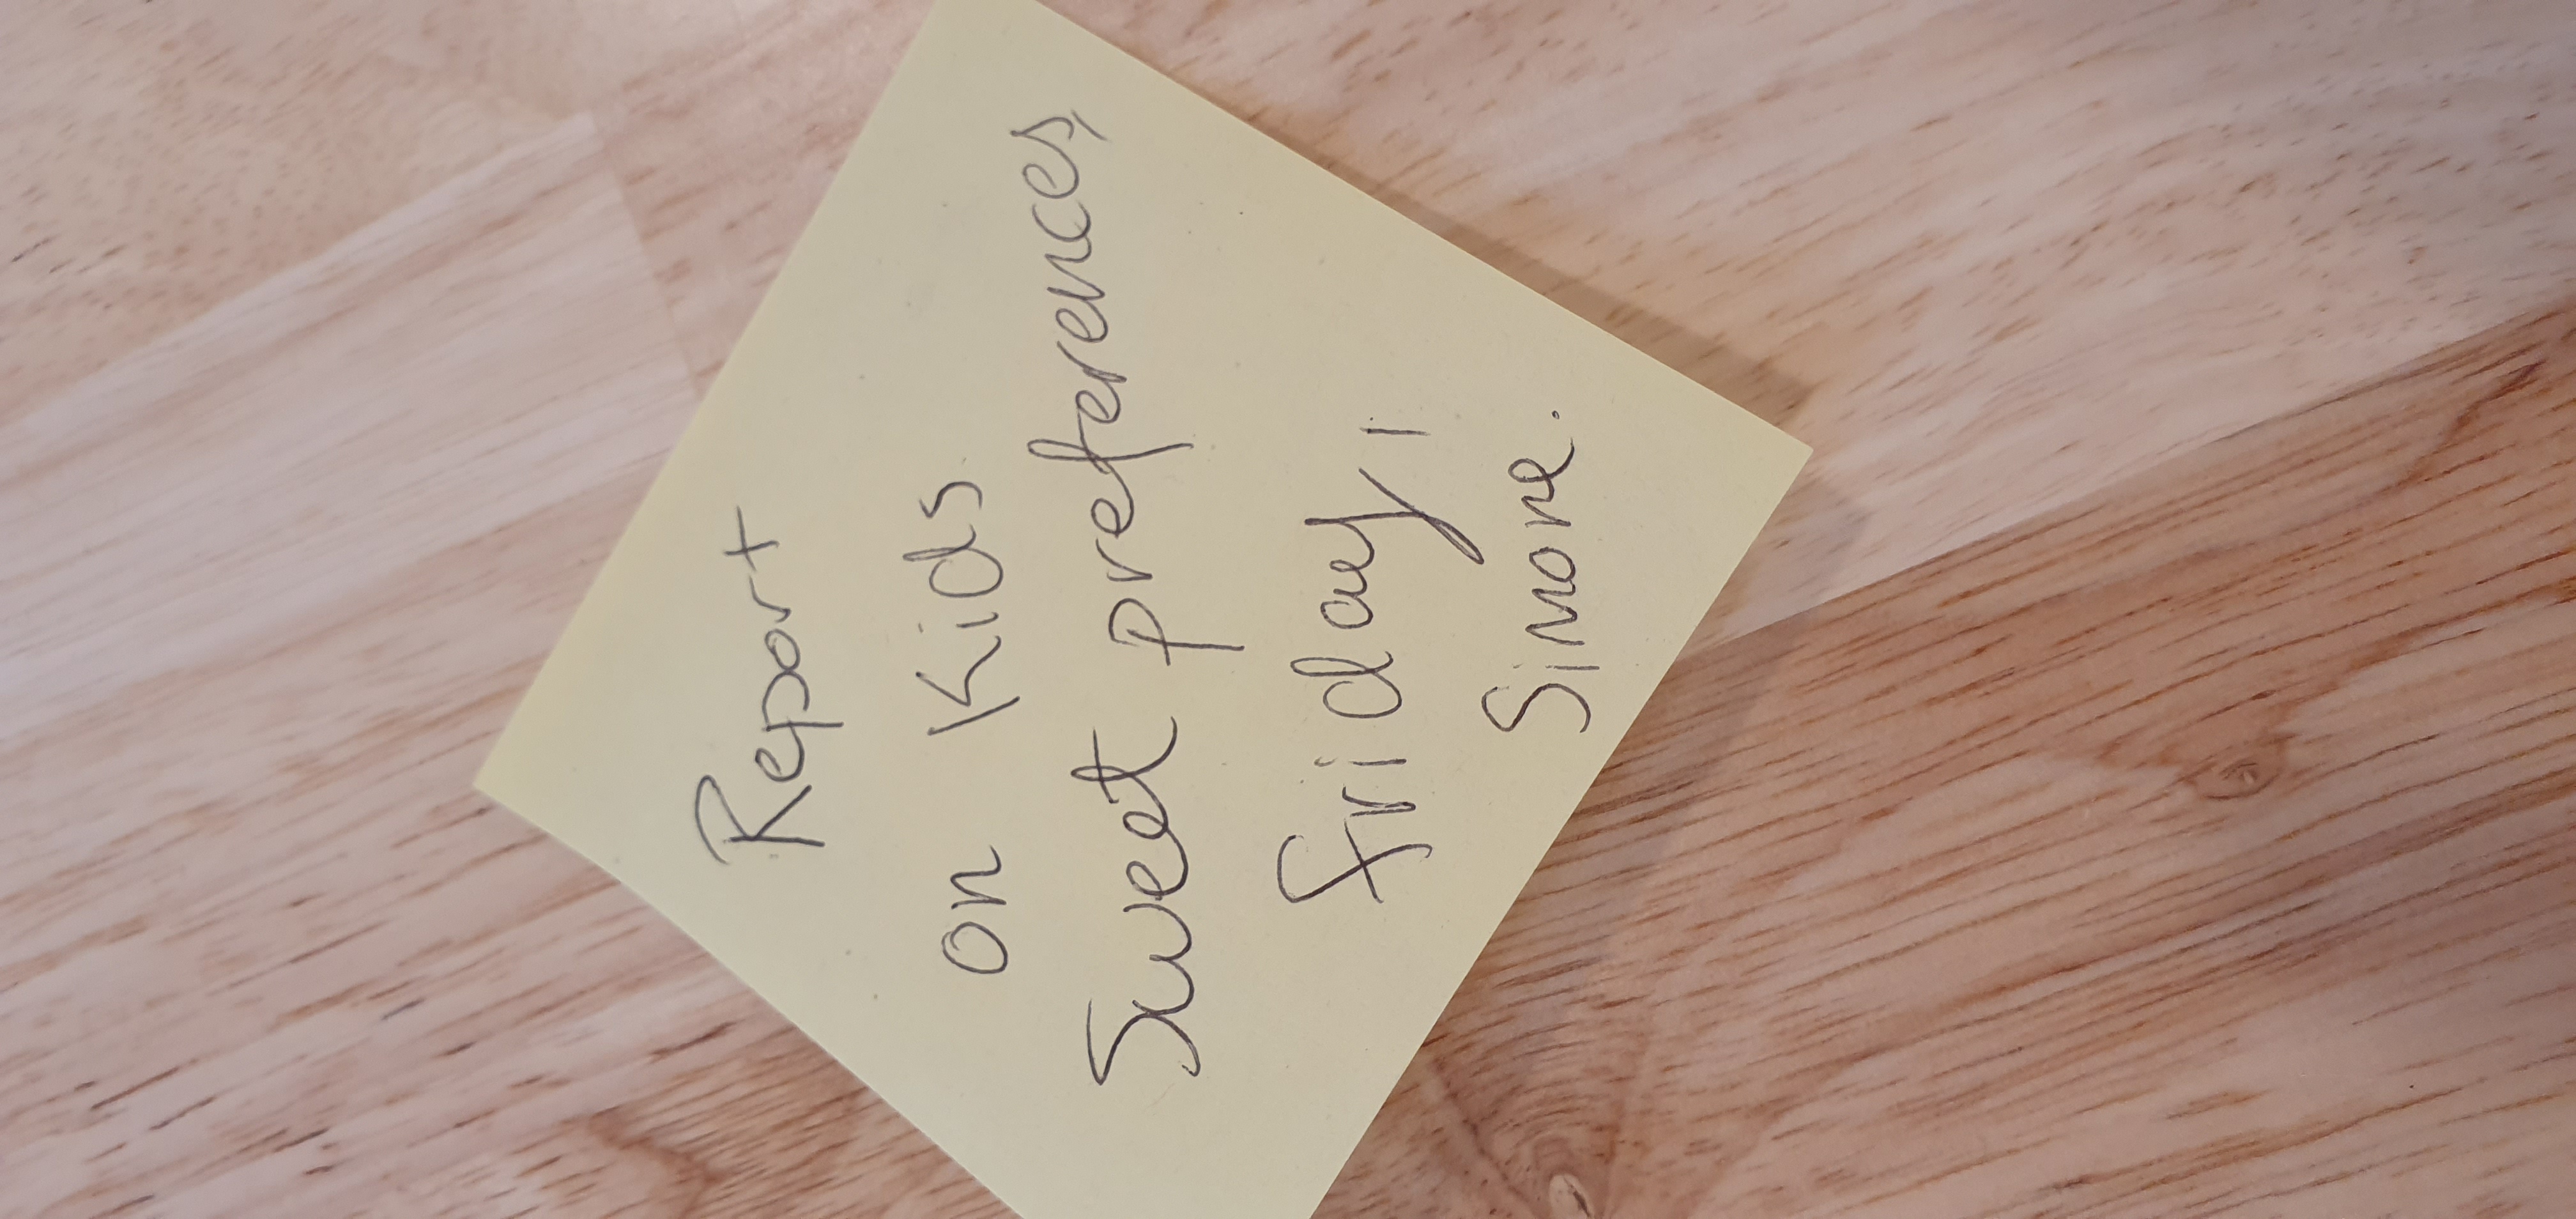 Report
on Kids
Sweet preferences,
friday,
Simone.